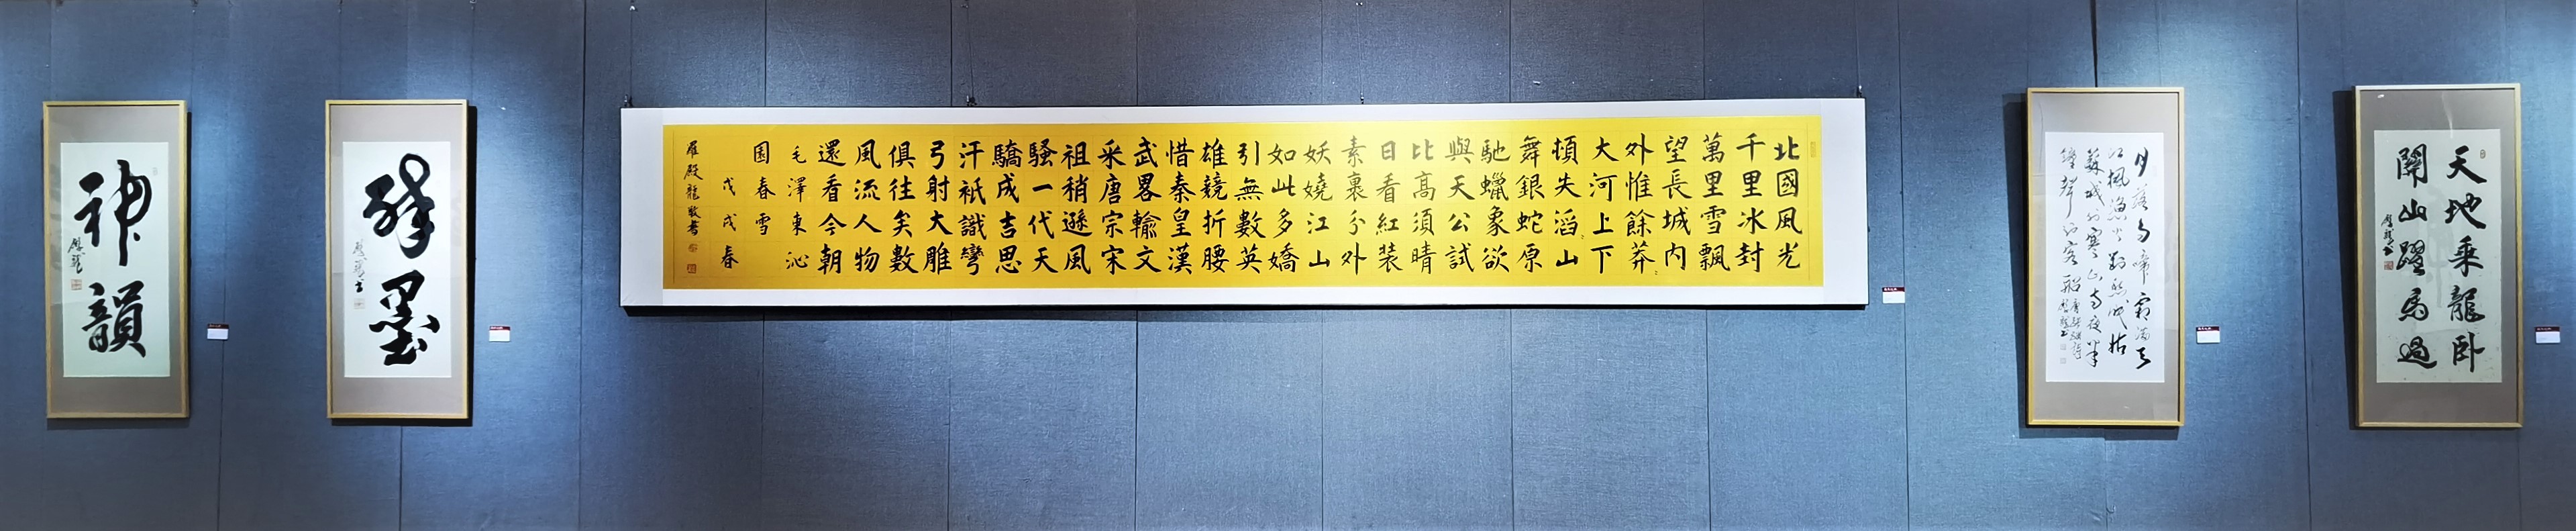 天地乘龍卧
關山躍馬過
殿龍書
月落烏啼霜滿天
江楓漁火對愁眠姑
蘇城外寒山寺夜半
鐘聲到客船
北國風光
千里冰封
萬里雪飄
望長城内
外惟餘莽
大河上下
頓失滔山
舞銀蛇原
馳蠟象欲
與天公試
比高須晴
日看紅裝
素裹分外
妖嬈江山
如此多嬌
引無數英
雄競折腰
惜秦皇漢
武畧輸文
采唐宗宋
祖稍遜風
騷一代天
驕成吉思
汗衹識彎
弓射大雕
俱往矣數
風流人物
還看今朝
毛澤東沁
園春雪
戊戌春
羅殿龍敬書
墨
殿龍書
神韻
殿龍